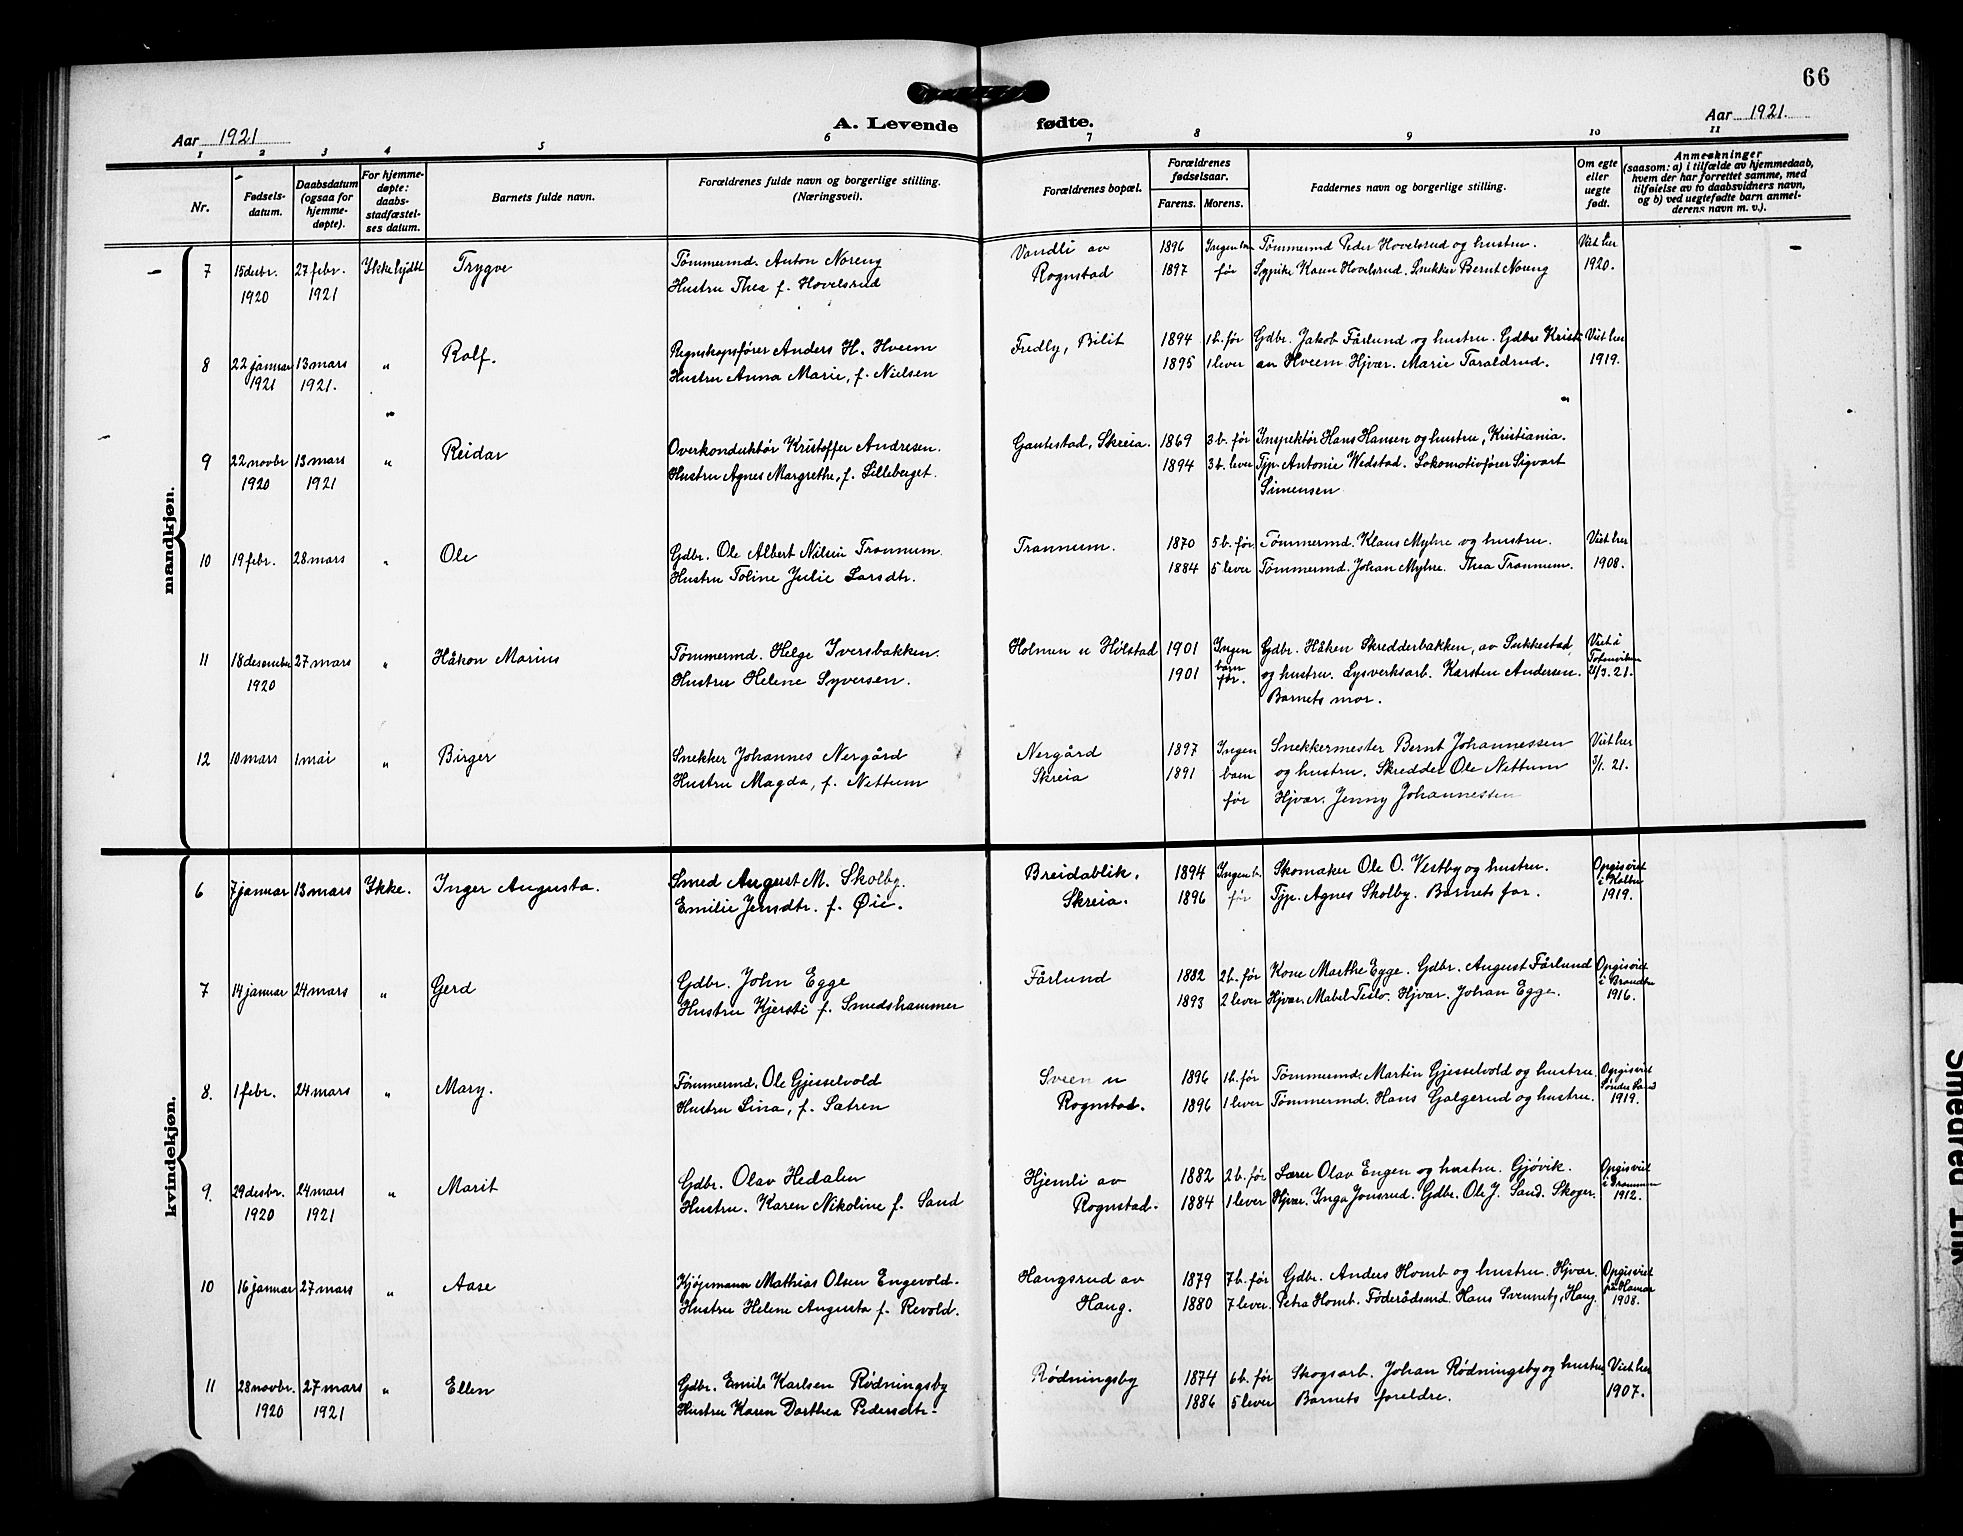 66
Aar 1921
A. Levende fødte.
Aar 1921.
1 2 3 4 5 6 7 8 9 10 11
Nr.
Fødsels-
datum.
Daabsdatum
(ogsaa for
hjemme-
døpte).
For hjemme-
døpte:
daabs-
stadfæstel-
ses datum.
Barnets fulde navn.
Forældrenes fulde navn og borgerlige stilling.
(Næringsvei).
Forældrenes bopæl.
Forældrenes
fødselsaar.
Farens. Morens.
Faddernes navn og borgerlige stilling.
Om egte
eller
uegte
født.
Anmerkninger
(saasom: a) i tilfælde av hjemmedaab,
hvem der har forrettet samme, med
tilføielse av to daabsvidners navn,
og b) ved uegtefødte barn anmel-
derens navn m. v.).
mandkjøn.
7 15 desbr. 27 febr. Ikke hjdbt Trygve Tømmermd. Anton Noreng Vandli av 1896 Ingen barn Tømmermd Peder Hovelsrud og hustru. Viet her
1920 1921 Hustru Thea f. Hovelsrud Rognstad 1897 før Sypike Karen Hovelsrud. Snekker Bernt Noreng 1920.
8 22 januar 13 mars " Rolf. Regnskapsfører Anders H. Hveem Fredly, Bilit 1894 1 b. før Gdbr. Jakob Fårlund og hustru. Gdbr. Kristi- Viet her
1921 1921. Hustru Anna Marie, f. Nielsen 1895 1 lever an Hveem Hjvær. Marie Taraldrud. 1919.
9 22 novbr 13 mars " Reidar Overkonduktør Kristoffer Andresen. Gautestad, Skreia. 1869 3 b. før Inspektør Hans Hansen og hustru, Kristiania.
1920 1921 Hustru Agnes Margrethe, f. Lilleberget. 1894 3 b. lever Tjp. Antonie Wedstad. Lokomotivfører Sigvart
Simensen
10 19 febr. 28 mars " Ole Gdbr. Ole Albert Nilsen Trannum. Trannum. 1870 5 b. før Tømmermd. Klaus Myhre og hustru. Viet her
Hustru Toline Julie Larsdtr. 1884 5 lever Tømmermd. Johan Myhre. Thea Trannum. 1908.
11 18 desember 27 mars " Håkon Marius Tømmermd. Helge Iversbakken. Holmen u Hølstad 1901 Ingen Gdbr. Håken Skredderbakken, av Sukkestad Viet i
1920 Hustru Helene Syversen. 1901 barn før. og hustru. Lysverksarb. Karsten Andersen. Totenviken 26/3. 21.
Barnets mor.
12 10 mars 1 mai " Birger Snekker Johannes Nergård Nergård 1897 Ingen Snekkermester Bernt Johannessen Viet her
Hustru Magda, f. Nettum Skreia 1891 barn og hustru. Skredder Ole Nettum 3/1. 21.
før Hjvær. Jenny Johannessen
kvindekjøn.
6 7 januar 13 mars Ikke. Inger Augusta. Smed August M. Skolby. Breidablik, 1894 Ingen b. Skomaker Ole O. Vestby og hustru. Opgis viet
Emilie Jensdtr. f. Øie. Skreia. 1896 før Tjp. Agnes Skolby. Barnets far. i Kolbu 1919.
7 14 januar 24 mars " Gerd Gdbr. John Egge Fårlund 1882 2 b. før Kone Marthe Egge. Gdbr. August Fårlund Opgis viet
Hustru Kjersti f. Smedshammer 1893 2 lever Hjvær. Mabel Teslo. Hjvær. Johan Egge. i Brandbu 1916.
8. 1 febr. 24 mars " Mary. Tømmermd. Ole Gjesselvold Sveen u 1896 1 b. før Tømmermd. Martin Gjesselvold og hustru. Opgis viet
Hustru Lina, f. Sætren Rognstad. 1896 1 lever Tømmermd. Hans Galgerud og hustru. Søndre Land 1919.
9. 29 desbr. 24 mars " Marit Gdbr. Olav Hedalen Hjemli av 1882 2 b. før Lærer Olav Engen og hustru. Gjøvik. Opgis viet
1920 1921 Hustru. Karen Nikoline f. Sand Rognstad. 1884 1 lever Hjvær. Inga Jonsrud. Gdbr. Ole J. Sand. Skoger. i Drammen 1912.
10 16 januar 27 mars " Aase Kjøpmann Mathias Olsen Engevold. Haugsrud av 1879 7 b. før Gdbr. Anders Homb og hustru. Hjvær. Opgis viet
Hustru Helene Augusta f. Revold. Haug. 1880 7 lever. Petra Homb. Føderådsmd. Hans Haug. på Hamar 1908.
11 28 novbr. 27 mars " Ellen Gdbr. Emil Karlsen Rødningsby Rødningsby 1874 6 b. før Skogsarb. Johan Rødningsby og hustru, Viet her
1920 1921 Hustru Karen Dorthea Pedersdtr. 1886 5 lever Barnets foreldre. 1907.